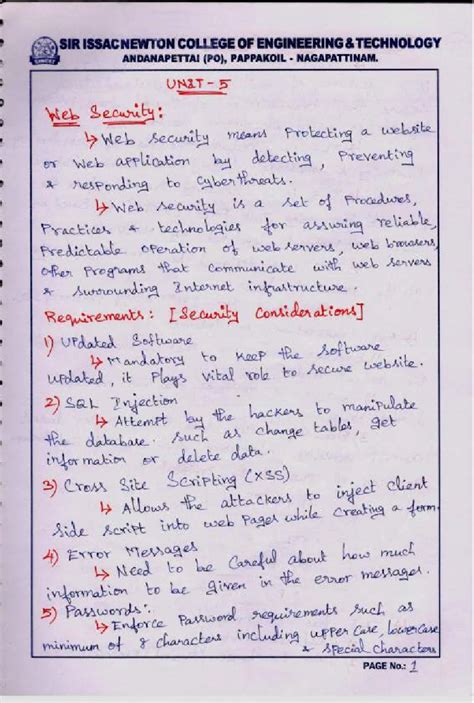 SIR ISSAC NEWTON COLLEGE OF ENGINEERING & TECHNOLOGY
ANDANAPETTAI (PO), PAPPAKOIL - NAGAPATTINAM.
UNIT - 5
Web Security:
↳ Web security means Protecting a website
or Web application by detecting, Preventing
& responding to Cyberthreats.
↳ Web security is a set of Procedures,
Practices & technologies for assuring reliable,
Predictable operation of web servers, web browsers,
other Programs that communicate with web servers
& surrounding Internet infrastructure.
Requirements: [Security Considerations]
1) Updated Software
↳ Mandatory to keep the software
updated, it Plays vital role to secure website.
2) SQL Injection
↳ Attempt by the hackers to manipulate
the database. Such as change tables, get
information or delete data.
3) Cross Site Scripting (XSS)
↳ Allows the attackers to inject client
side script into web Pages while creating a form.
4) Error Messages
↳ Need to be Careful about how much
information to be given in the error messages.
5) Passwords:
↳ Enforce Password requirements such as
minimum of 8 characters including upper case, lowercase
& special characters
PAGE No.: 1